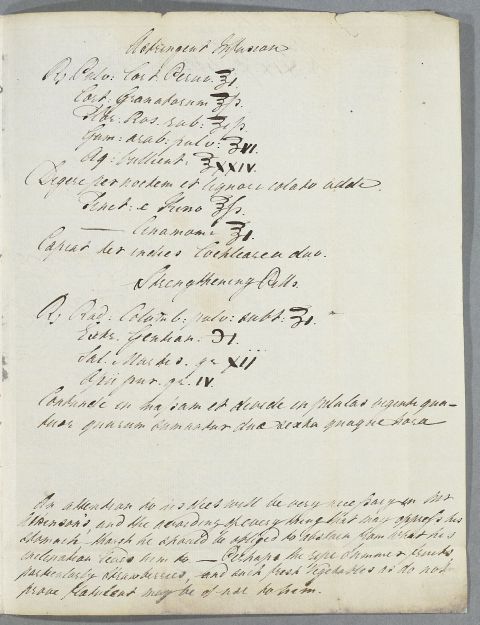 Astringent Infusion
℞ Pulv: Cort. Peruv. ℥I.
Cort: Granatorum ℥ß.
Flor: Ros. rub: ʒß.
Gum: arab: pulv: ʒVI.
Aq: bullient: ℥XXIV.
Digere per noctem et liquori colato adde.
Tinct: e Kino ℥ß.
—— Cinamomi ℥I.
Capiat ter indies Cochlearea duo.
Strengthening Pills.
℞ Rad: Columb: pulv: subt: ʒI.
Extr: Gentian: ℈I.
Sal: Martis. gr XII
Opii pur. gr. IV.
Contunde in massam et devide in pilulas vigenti qua-
tuor quarum sumantur duæ sexta quaque hora
An attention to his diet will be very necessary in Mr
and the avoiding of every thing that may oppress his
Stomach. Harsh he should be obliged to abstain from what his
inclination leads him to — Perhaps the ripe Summer fruits
particularly Strawberries, and such fresh Vegetables as do not
prove flatulent may be of use to him.